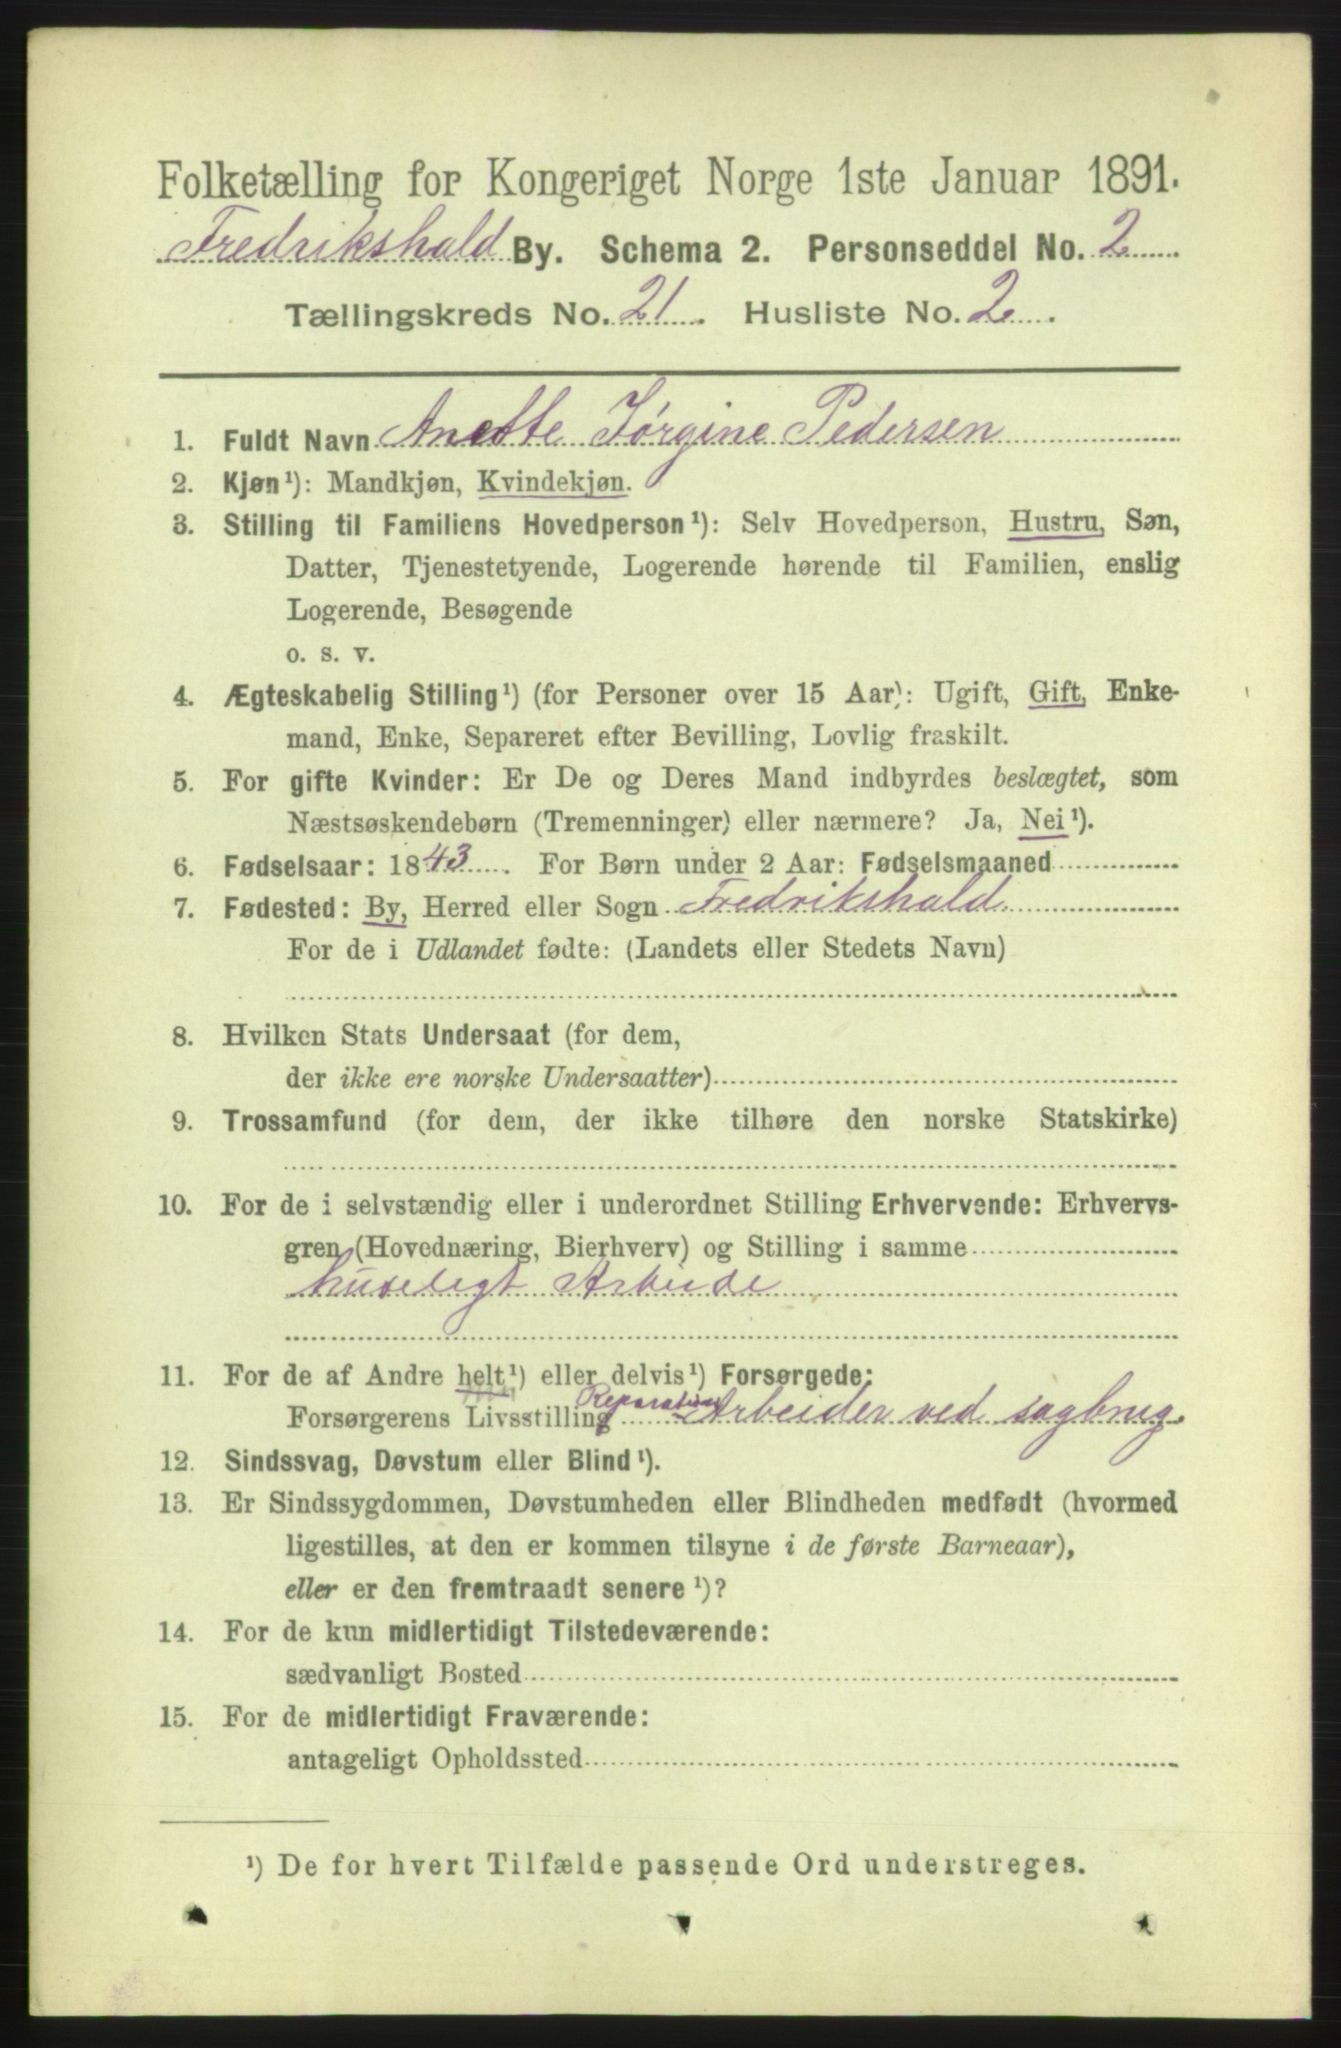 Folketælling for Kongeriget Norge 1ste Januar 1891.
Fredrikshald By. Schema 2. Personseddel No. 2
Tællingskreds No. 21. Husliste No. 2.
1. Fuldt Navn Anette Jørgine Pedersen
2. Kjøn¹): Mandkjøn, Kvindekjøn.
3. Stilling til Familiens Hovedperson¹): Selv Hovedperson, Hustru, Søn,
Datter, Tjenestetyende, Logerende hørende til Familien, enslig
Logerende, Besøgende
o. s. v.
4. Ægteskabelig Stilling¹) (for Personer over 15 Aar): Ugift, Gift, Enke-
mand, Enke, Separeret efter Bevilling, Lovlig fraskilt.
5. For gifte Kvinder: Er De og Deres Mand indbyrdes beslægtet, som
Næstsøskendebørn (Tremenninger) eller nærmere? Ja, Nei¹).
6. Fødselsaar: 1843. For Børn under 2 Aar: Fødselsmaaned
7. Fødested: By, Herred eller Sogn Fredrikshald
For de i Udlandet fødte: (Landets eller Stedets Navn)
8. Hvilken Stats Undersaat (for dem,
der ikke ere norske Undersaatter)
9. Trossamfund (for dem, der ikke tilhøre den norske Statskirke)
10. For de i selvstændig eller i underordnet Stilling Erhvervende: Erhvervs-
gren (Hovednæring, Bierhverv) og Stilling i samme
huseligt Arbeide
11. For de af Andre helt¹) eller delvis¹) Forsørgede:
Forsørgerens Livsstilling Reparations Arbeider ved sagbrug.
12. Sindssvag, Døvstum eller Blind¹).
13. Er Sindssygdommen, Døvstumheden eller Blindheden medfødt (hvormed
ligestilles, at den er kommen tilsyne i de første Barneaar),
eller er den fremtraadt senere¹)?
14. For de kun midlertidigt Tilstedeværende:
sædvanligt Bosted
15. For de midlertidigt Fraværende:
antageligt Opholdssted
¹) De for hvert Tilfælde passende Ord understreges.